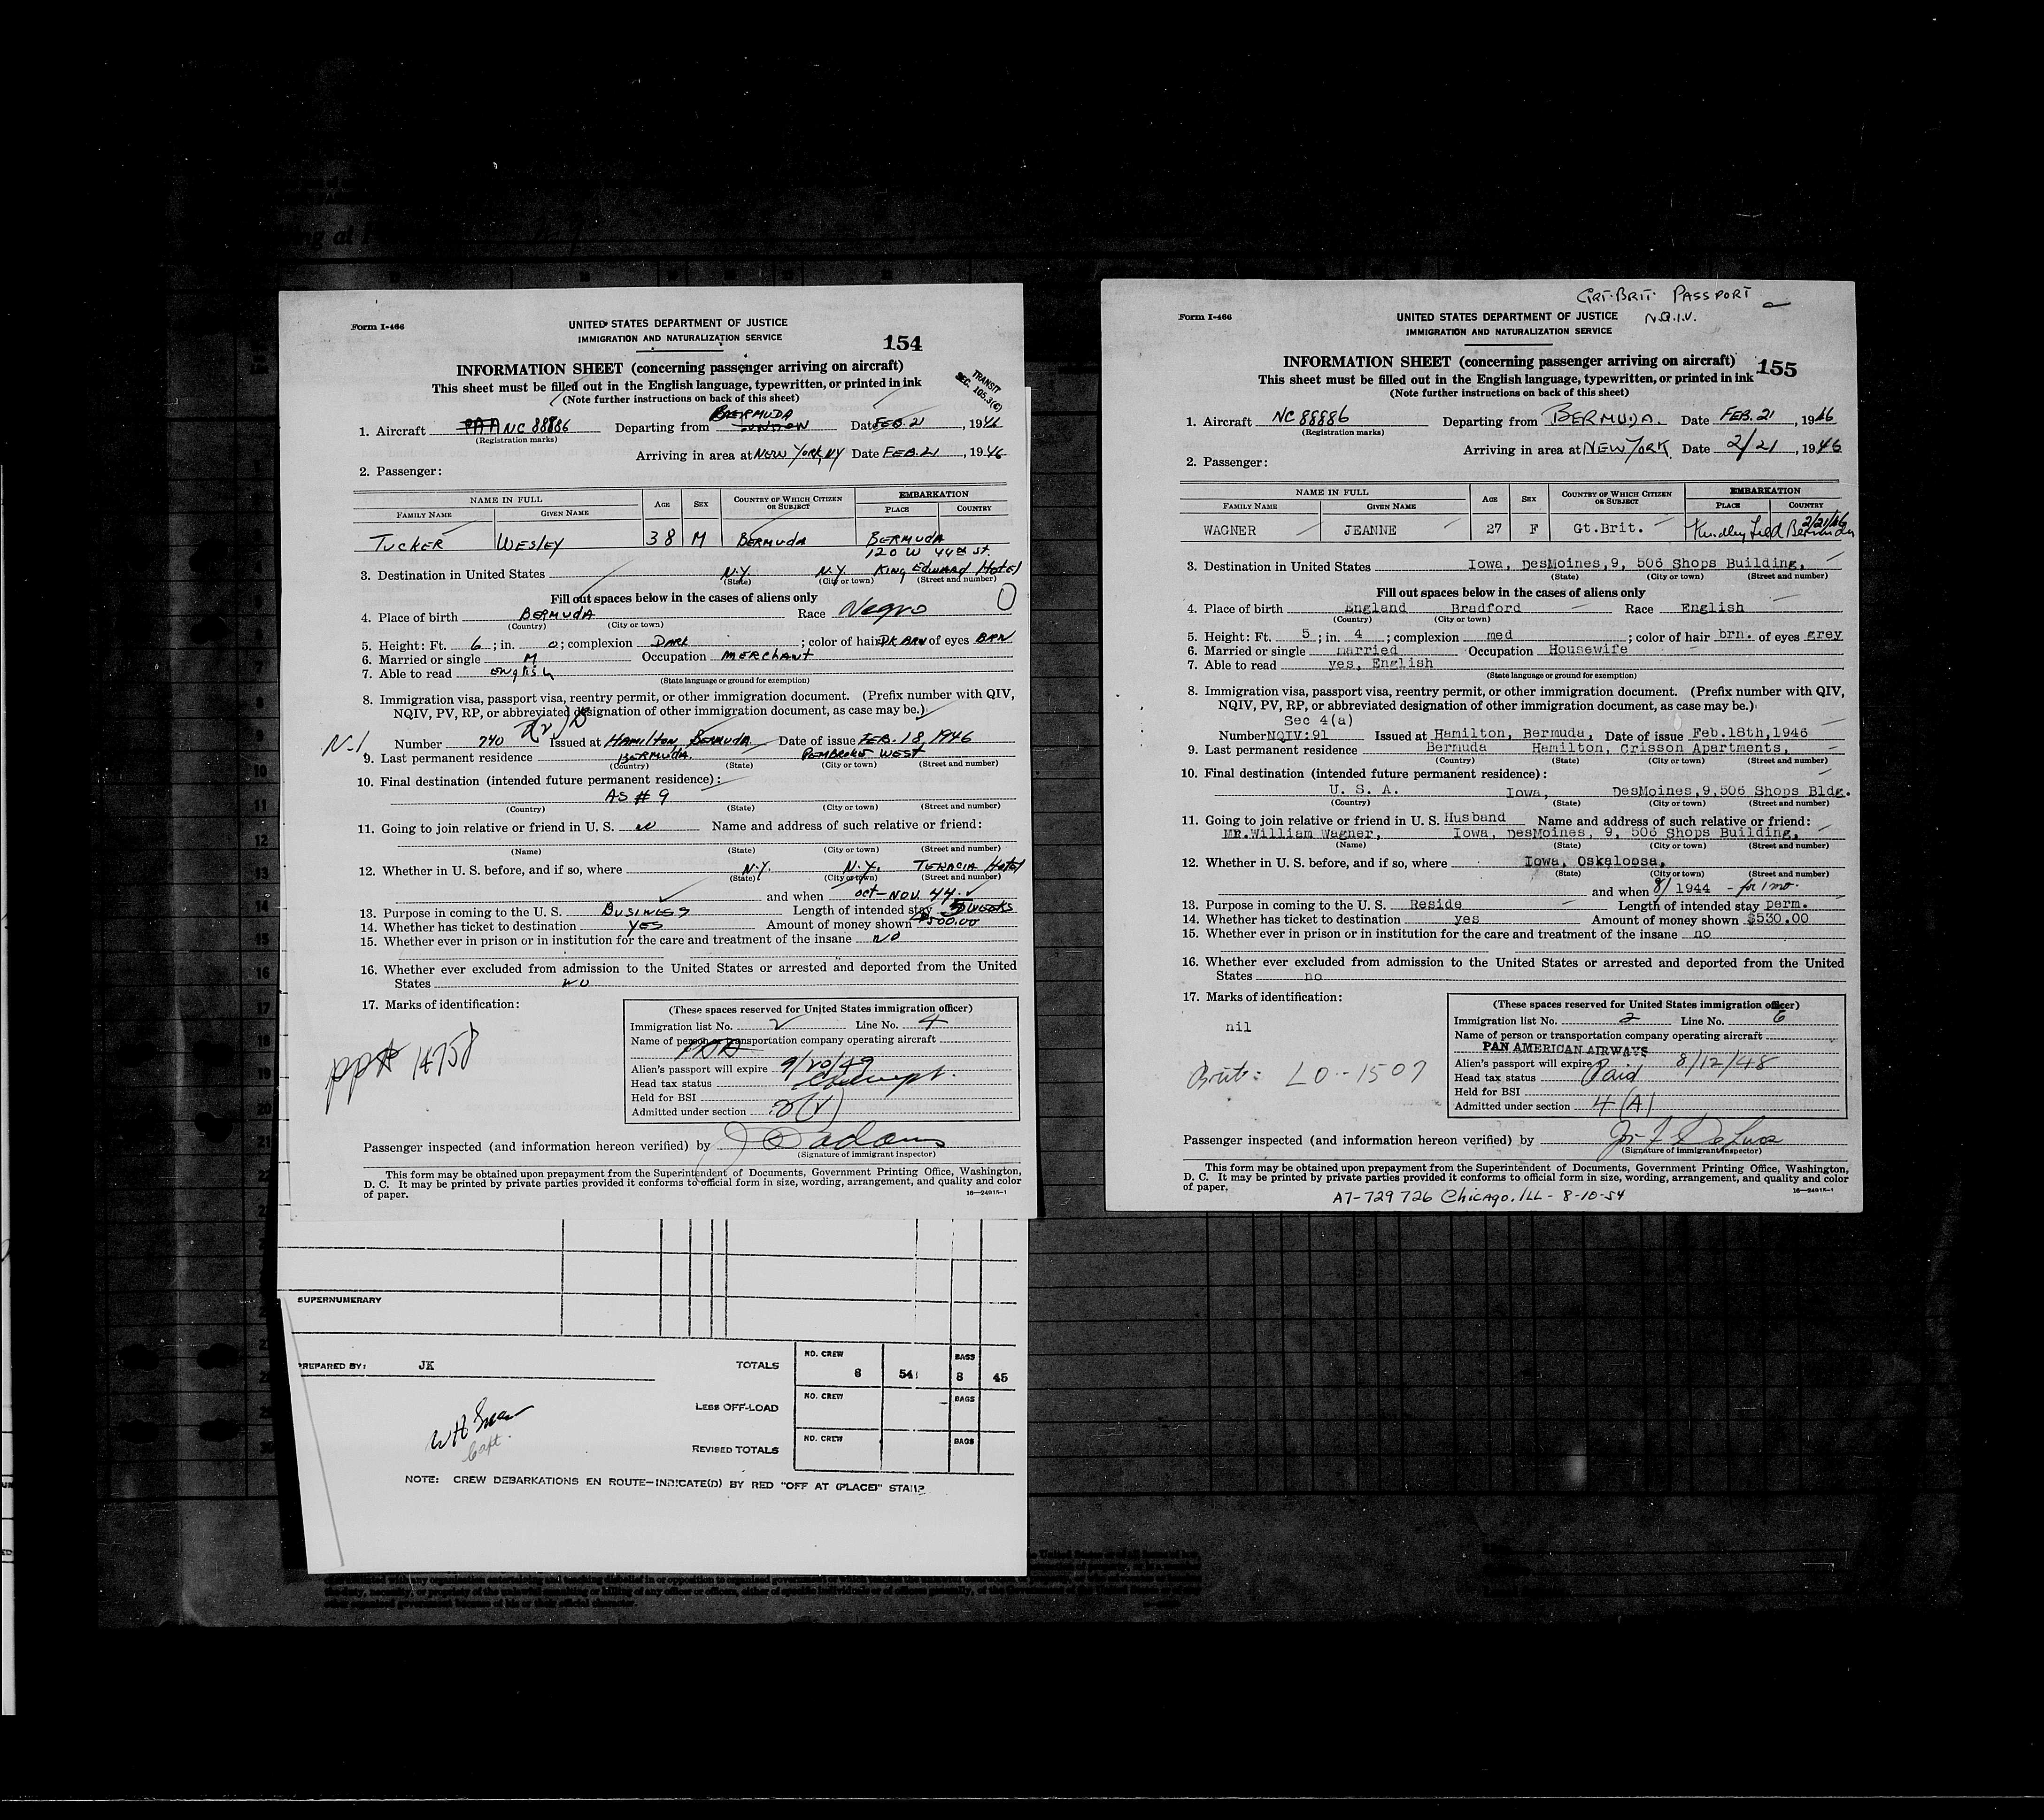 Form I-466
UNITED STATES DEPARTMENT OF JUSTICE
IMMIGRATION AND NATURALIZATION SERVICE
154
INFORMATION SHEET (concerning passenger arriving on aircraft)
This sheet must be filled out in the English language, typewritten, or printed in ink
(Note further instructions on back of this sheet)
TRANSIT
SEC. 105.3(C)
BERMUDA
1. Aircraft PAA NC 88886 Departing from LONDON Date FEB. 21, 1946
(Registration marks)
Arriving in area at NEW YORK, NY Date FEB. 21, 1946
2. Passenger:
NAME IN FULL AGE SEX COUNTRY OF WHICH CITIZEN OR SUBJECT EMBARKATION
FAMILY NAME GIVEN NAME PLACE COUNTRY
TUCKER WESLEY 38 M BERMUDA BERMUDA
120 W 44th St.
3. Destination in United States N.Y. N.Y. KING EDWARD HOTEL
(State) (City or town) (Street and number)
Fill out spaces below in the cases of aliens only
4. Place of birth BERMUDA Race Negro
(Country) (City or town)
5. Height: Ft. 6; in. 0; complexion DARK; color of hair DK BRN of eyes BRN
6. Married or single M Occupation MERCHANT
7. Able to read English
(State language or ground for exemption)
8. Immigration visa, passport visa, reentry permit, or other immigration document. (Prefix number with QIV,
NQIV, PV, RP, or abbreviated designation of other immigration document, as case may be.)
N-1
Number 740 Issued at HAMILTON BERMUDA Date of issue FEB. 18, 1946
9. Last permanent residence BERMUDA. PEMBROKE WEST
(Country) (State) (City or town) (Street and number)
10. Final destination (intended future permanent residence):
AS # 9
(Country) (State) (City or town) (Street and number)
11. Going to join relative or friend in U. S. NO Name and address of such relative or friend:
(Name) (State) (City or town) (Street and number)
12. Whether in U. S. before, and if so, where N.Y. N.Y. TERACIA HOTEL
(State) (City or town) (Street and number)
and when OCT-NOV. 44.
13. Purpose in coming to the U. S. BUSINESS Length of intended stay 5 WEEKS
14. Whether has ticket to destination YES Amount of money shown $500.00
15. Whether ever in prison or in institution for the care and treatment of the insane NO
16. Whether ever excluded from admission to the United States or arrested and deported from the United
States NO
17. Marks of identification:
pp# 14758
(These spaces reserved for United States immigration officer)
Immigration list No. 2 Line No. 4
Name of person or transportation company operating aircraft
PAA
Alien's passport will expire 9/20/49
Head tax status Exempt.
Held for BSI
Admitted under section 3(V)
Passenger inspected (and information hereon verified) by J O Adams
(Signature of immigrant inspector)
This form may be obtained upon prepayment from the Superintendent of Documents, Government Printing Office, Washington,
D. C. It may be printed by private parties provided it conforms to official form in size, wording, arrangement, and quality and color
of paper.
16—24915-1
SUPERNUMERARY
PREPARED BY: JK
TOTALS NO. CREW 8 54 BAGS 8 45
LESS OFF-LOAD NO. CREW BAGS
REVISED TOTALS NO. CREW BAGS
Capt.
NOTE: CREW DEBARKATIONS EN ROUTE—INDICATE(D) BY RED "OFF AT (PLACE)" STAMP
GRT. BRIT. PASSPORT
N.Q.I.V.
Form I-466
UNITED STATES DEPARTMENT OF JUSTICE
IMMIGRATION AND NATURALIZATION SERVICE
INFORMATION SHEET (concerning passenger arriving on aircraft)
155
This sheet must be filled out in the English language, typewritten, or printed in ink
(Note further instructions on back of this sheet)
1. Aircraft NC 88886 Departing from BERMUDA. Date FEB. 21, 1946
(Registration marks)
Arriving in area at NEW YORK Date 2/21, 1946
2. Passenger:
NAME IN FULL AGE SEX COUNTRY OF WHICH CITIZEN OR SUBJECT EMBARKATION
FAMILY NAME GIVEN NAME PLACE COUNTRY
2/21/46
WAGNER JEANNE 27 F Gt.Brit. Kindley Field Bermuda
3. Destination in United States Iowa, DesMoines,9, 506 Shops Building,
(State) (City or town) (Street and number)
Fill out spaces below in the cases of aliens only
4. Place of birth England Bradford Race English
(Country) (City or town)
5. Height: Ft. 5; in. 4; complexion med; color of hair brn. of eyes grey
6. Married or single married Occupation Housewife
7. Able to read yes, English
(State language or ground for exemption)
8. Immigration visa, passport visa, reentry permit, or other immigration document. (Prefix number with QIV,
NQIV, PV, RP, or abbreviated designation of other immigration document, as case may be.)
Sec 4(a)
Number NQIV:91 Issued at Hamilton, Bermuda, Date of issue Feb.18th,1946
9. Last permanent residence Bermuda Hamilton, Crisson Apartments,
(Country) (State) (City or town) (Street and number)
10. Final destination (intended future permanent residence):
U. S. A. Iowa, DesMoines,9,506 Shops Bldg.
(Country) (State) (City or town) (Street and number)
11. Going to join relative or friend in U. S. Husband Name and address of such relative or friend:
MR.William Wagner, Iowa, DesMoines, 9, 506 Shops Building,
(Name) (State) (City or town) (Street and number)
12. Whether in U. S. before, and if so, where Iowa, Oskaloosa,
(State) (City or town) (Street and number)
and when 8/1944 - for 1 mo.
13. Purpose in coming to the U. S. Reside Length of intended stay perm.
14. Whether has ticket to destination yes Amount of money shown $530.00
15. Whether ever in prison or in institution for the care and treatment of the insane no
16. Whether ever excluded from admission to the United States or arrested and deported from the United
States no
17. Marks of identification:
nil
Brit: LO-1507
(These spaces reserved for United States immigration officer)
Immigration list No. 2 Line No. 6
Name of person or transportation company operating aircraft
PAN AMERICAN AIRWAYS
Alien's passport will expire 8/12/48
Head tax status Paid
Held for BSI
Admitted under section 4(A)
Passenger inspected (and information hereon verified) by Jos F DeLuca
(Signature of immigrant inspector)
This form may be obtained upon prepayment from the Superintendent of Documents, Government Printing Office, Washington,
D. C. It may be printed by private parties provided it conforms to official form in size, wording, arrangement, and quality and color
of paper.
16—24915-1
A7-729 726 Chicago. ILL - 8-10-54